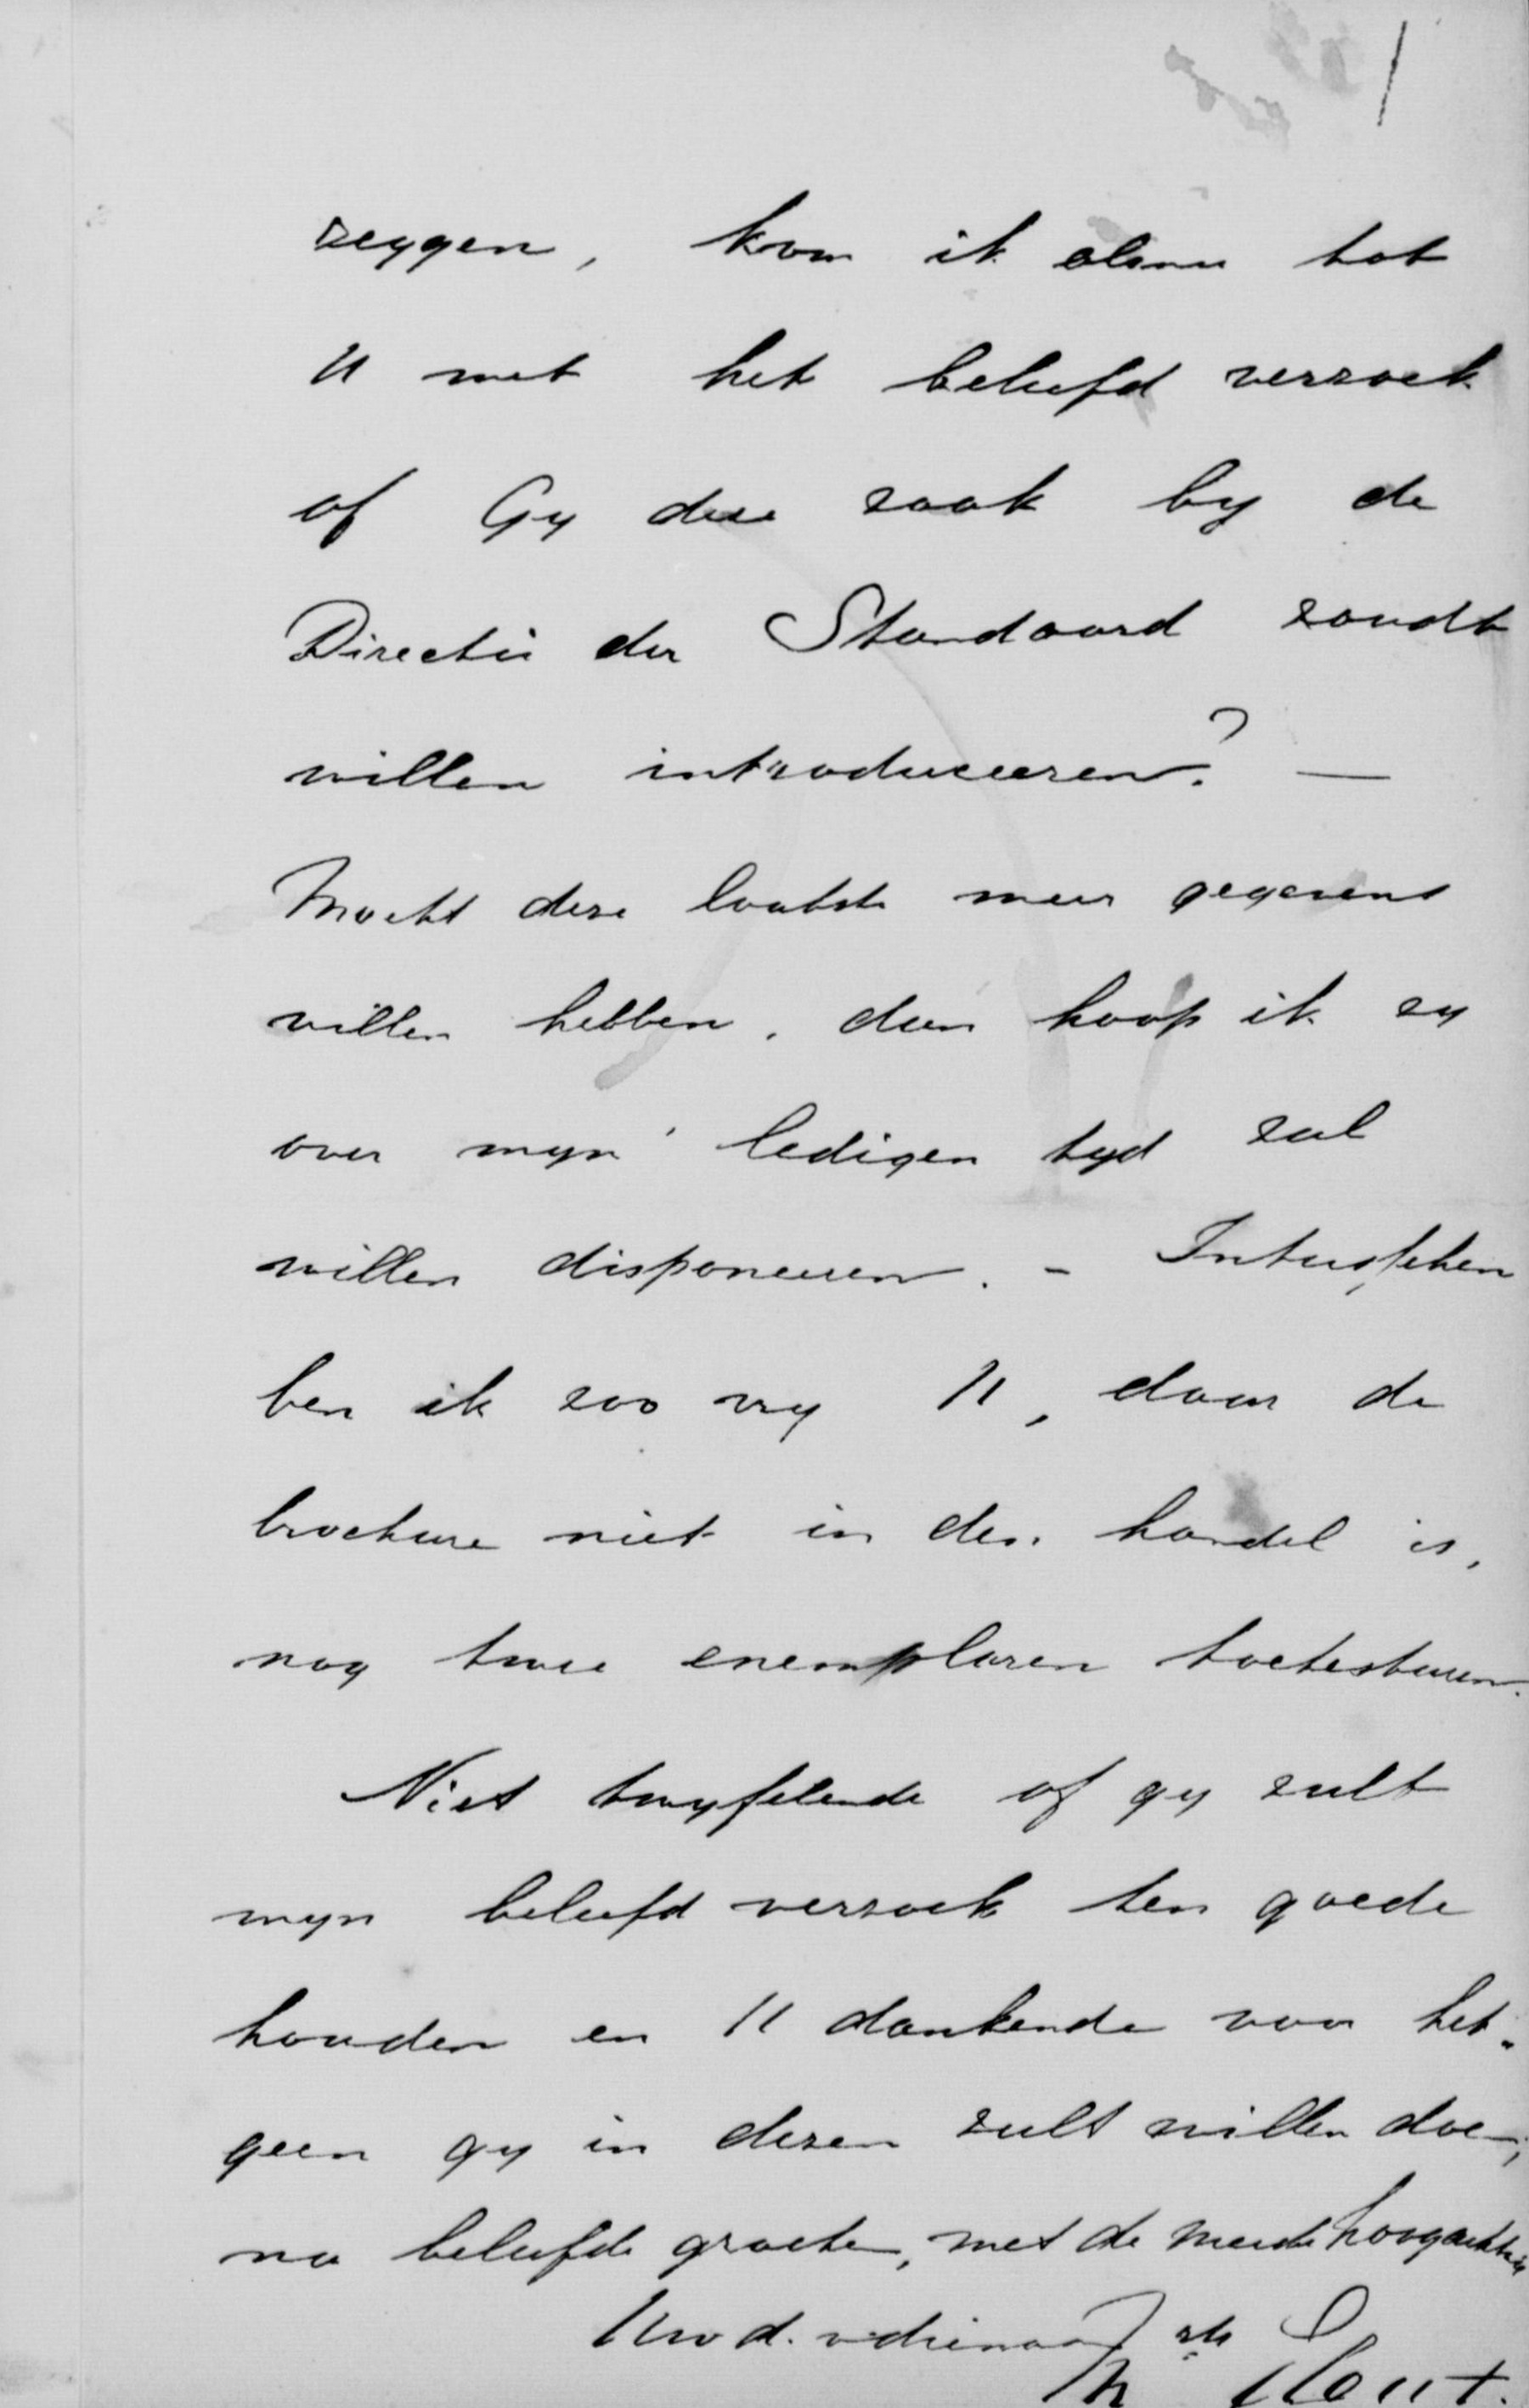 zeggen, kom ik alsnu tot
U met het beleefd verzoek
of Gy deze zaak by de
Directie der Standaard zoudt
willen introduceeren? —
Mocht deze laatste meer gegevens
willen hebben, dan hoop ik zy
over myn ledigen tyd zal
willen disponeeren. – Intusschen
ben ik zoo vry U, daar de
brochure niet in den handel is,
nog twee exemplaren toetesturen.
Niet twyfelende of gy zult
myn beleefd verzoek ten goede
houden en U dankende voor het-
geen gy in dezen zult willen doen,
na beleefde groete, met de meeste hoogachting
Uw d. v. dienaar